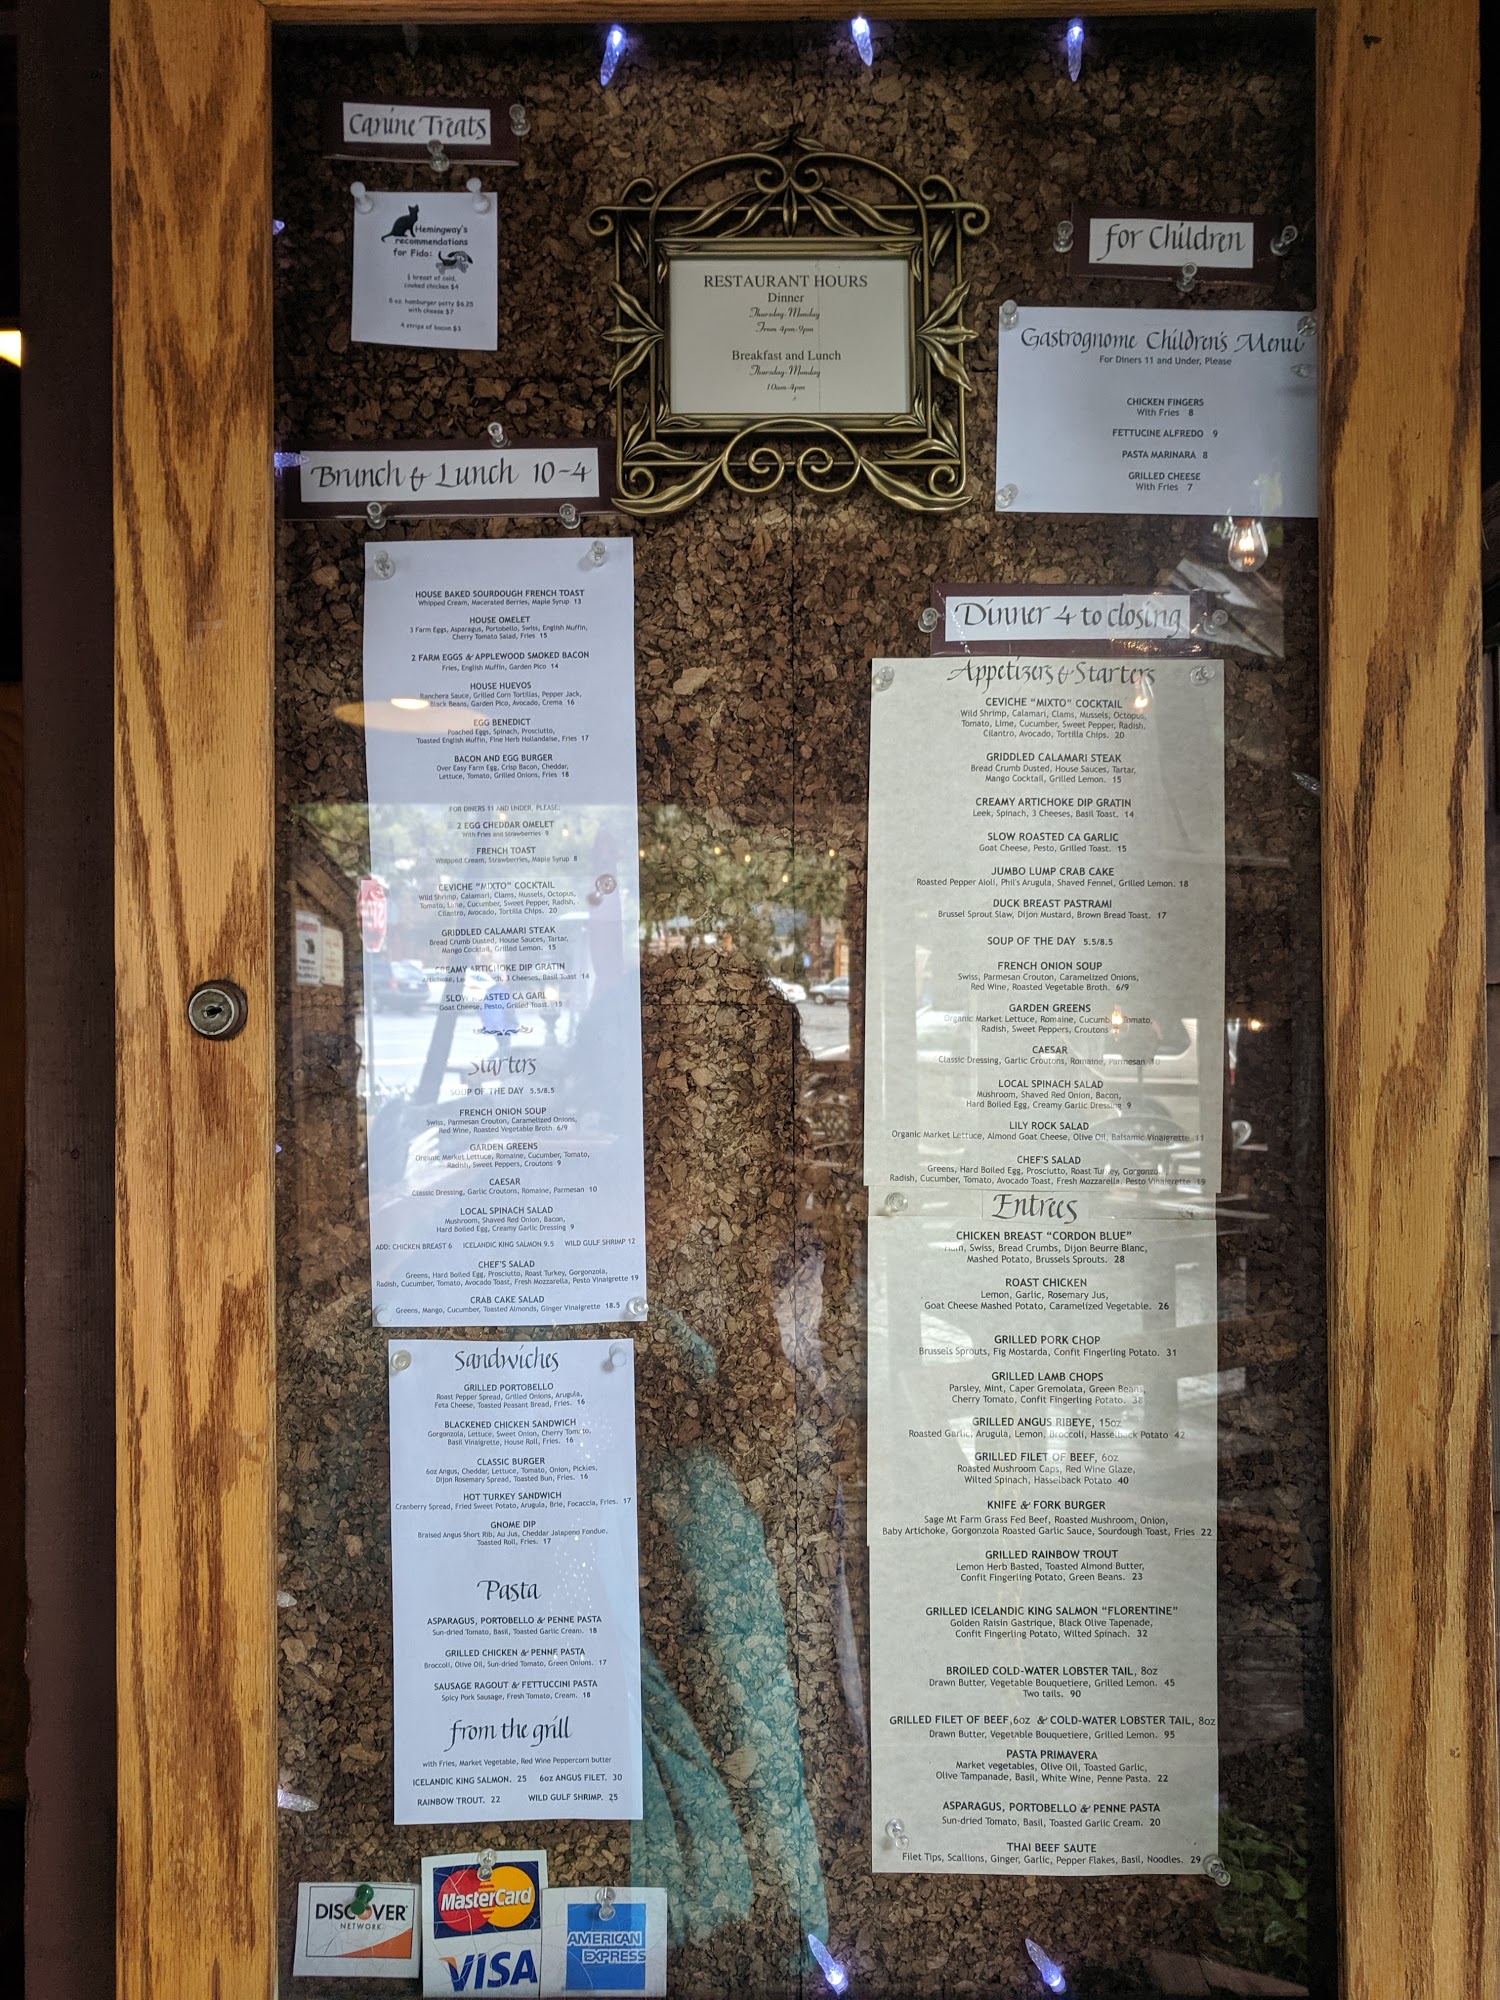 Canine Treats
Hemingway's
recommendations
for Fido:
½ breast of cold,
cooked chicken $4
6 oz. hamburger patty $6.25
with cheese $7
4 strips of bacon $3
RESTAURANT HOURS
Dinner
Thursday-Monday
From 4pm-9pm
Breakfast and Lunch
Thursday-Monday
10am-4pm
For Children
Gastrognome Children's Menu
For Diners 11 and Under, Please
CHICKEN FINGERS
With Fries 8
FETTUCINE ALFREDO 9
PASTA MARINARA 8
GRILLED CHEESE
With Fries 7
Brunch & Lunch 10-4
HOUSE BAKED SOURDOUGH FRENCH TOAST
Whipped Cream, Macerated Berries, Maple Syrup 13
HOUSE OMELET
3 Farm Eggs, Asparagus, Portobello, Swiss, English Muffin,
Cherry Tomato Salad, Fries 15
2 FARM EGGS & APPLEWOOD SMOKED BACON
Fries, English Muffin, Garden Pico 14
HOUSE HUEVOS
Ranchera Sauce, Grilled Corn Tortillas, Pepper Jack,
Black Beans, Garden Pico, Avocado, Crema 16
EGG BENEDICT
Poached Eggs, Spinach, Prosciutto,
Toasted English Muffin, Fine Herb Hollandaise, Fries 17
BACON AND EGG BURGER
Over Easy Farm Egg, Crisp Bacon, Cheddar,
Lettuce, Tomato, Grilled Onions, Fries 18
FOR DINERS 11 AND UNDER, PLEASE:
2 EGG CHEDDAR OMELET
With Fries and Strawberries 9
FRENCH TOAST
Whipped Cream, Strawberries, Maple Syrup 8
CEVICHE "MIXTO" COCKTAIL
Wild Shrimp, Calamari, Clams, Mussels, Octopus,
Tomato, Lime, Cucumber, Sweet Pepper, Radish,
Cilantro, Avocado, Tortilla Chips. 20
GRIDDLED CALAMARI STEAK
Bread Crumb Dusted, House Sauces, Tartar,
Mango Cocktail, Grilled Lemon. 15
CREAMY ARTICHOKE DIP GRATIN
3 Cheeses, Basil Toast 14
SLOW ROASTED CA GARLIC
Goat Cheese, Pesto, Grilled Toast. 15
Starters
SOUP OF THE DAY 5.5/8.5
FRENCH ONION SOUP
Swiss, Parmesan Crouton, Caramelized Onions,
Red Wine, Roasted Vegetable Broth 6/9
GARDEN GREENS
Organic Market Lettuce, Romaine, Cucumber, Tomato,
Radish, Sweet Peppers, Croutons 9
CAESAR
Classic Dressing, Garlic Croutons, Romaine, Parmesan 10
LOCAL SPINACH SALAD
Mushroom, Shaved Red Onion, Bacon,
Hard Boiled Egg, Creamy Garlic Dressing 9
ADD: CHICKEN BREAST 6 ICELANDIC KING SALMON 9.5 WILD GULF SHRIMP 12
CHEF'S SALAD
Greens, Hard Boiled Egg, Prosciutto, Roast Turkey, Gorgonzola,
Radish, Cucumber, Tomato, Avocado Toast, Fresh Mozzarella, Pesto Vinaigrette 19
CRAB CAKE SALAD
Greens, Mango, Cucumber, Toasted Almonds, Ginger Vinaigrette 18.5
Sandwiches
GRILLED PORTOBELLO
Roast Pepper Spread, Grilled Onions, Arugula,
Feta Cheese, Toasted Peasant Bread, Fries. 16
BLACKENED CHICKEN SANDWICH
Gorgonzola, Lettuce, Sweet Onion, Cherry Tomato,
Basil Vinaigrette, House Roll, Fries. 16
CLASSIC BURGER
6oz Angus, Cheddar, Lettuce, Tomato, Onion, Pickles,
Dijon Rosemary Spread, Toasted Bun, Fries. 16
HOT TURKEY SANDWICH
Cranberry Spread, Fried Sweet Potato, Arugula, Brie, Focaccia, Fries. 17
GNOME DIP
Braised Angus Short Rib, Au Jus, Cheddar Jalapeno Fondue,
Toasted Roll, Fries. 17
Pasta
ASPARAGUS, PORTOBELLO & PENNE PASTA
Sun-dried Tomato, Basil, Toasted Garlic Cream. 18
GRILLED CHICKEN & PENNE PASTA
Broccoli, Olive Oil, Sun-dried Tomato, Green Onions. 17
SAUSAGE RAGOUT & FETTUCCINI PASTA
Spicy Pork Sausage, Fresh Tomato, Cream. 18
from the grill
with Fries, Market Vegetable, Red Wine Peppercorn butter
ICELANDIC KING SALMON. 25 6oz ANGUS FILET. 30
RAINBOW TROUT. 22 WILD GULF SHRIMP. 25
Dinner 4 to closing
Appetizers & Starters
CEVICHE "MIXTO" COCKTAIL
Wild Shrimp, Calamari, Clams, Mussels, Octopus,
Tomato, Lime, Cucumber, Sweet Pepper, Radish,
Cilantro, Avocado, Tortilla Chips. 20
GRIDDLED CALAMARI STEAK
Bread Crumb Dusted, House Sauces, Tartar,
Mango Cocktail, Grilled Lemon. 15
CREAMY ARTICHOKE DIP GRATIN
Leek, Spinach, 3 Cheeses, Basil Toast. 14
SLOW ROASTED CA GARLIC
Goat Cheese, Pesto, Grilled Toast. 15
JUMBO LUMP CRAB CAKE
Roasted Pepper Aioli, Phil's Arugula, Shaved Fennel, Grilled Lemon. 18
DUCK BREAST PASTRAMI
Brussel Sprout Slaw, Dijon Mustard, Brown Bread Toast. 17
SOUP OF THE DAY 5.5/8.5
FRENCH ONION SOUP
Swiss, Parmesan Crouton, Caramelized Onions,
Red Wine, Roasted Vegetable Broth. 6/9
GARDEN GREENS
Organic Market Lettuce, Romaine, Cucumber, Tomato,
Radish, Sweet Peppers, Croutons
CAESAR
Classic Dressing, Garlic Croutons, Romaine, Parmesan 10
LOCAL SPINACH SALAD
Mushroom, Shaved Red Onion, Bacon,
Hard Boiled Egg, Creamy Garlic Dressing 9
LILY ROCK SALAD
Organic Market Lettuce, Almond Goat Cheese, Olive Oil, Balsamic Vinaigrette 11
CHEF'S SALAD
Greens, Hard Boiled Egg, Prosciutto, Roast Turkey, Gorgonzola,
Radish, Cucumber, Tomato, Avocado Toast, Fresh Mozzarella, Pesto Vinaigrette 19
Entrees
CHICKEN BREAST "CORDON BLUE"
Ham, Swiss, Bread Crumbs, Dijon Beurre Blanc,
Mashed Potato, Brussels Sprouts. 28
ROAST CHICKEN
Lemon, Garlic, Rosemary Jus,
Goat Cheese Mashed Potato, Caramelized Vegetable. 26
GRILLED PORK CHOP
Brussels Sprouts, Fig Mostarda, Confit Fingerling Potato. 31
GRILLED LAMB CHOPS
Parsley, Mint, Caper Gremolata, Green Beans,
Cherry Tomato, Confit Fingerling Potato. 38
GRILLED ANGUS RIBEYE, 15oz
Roasted Garlic, Arugula, Lemon, Broccoli, Hasselback Potato 42
GRILLED FILET OF BEEF, 6oz
Roasted Mushroom Caps, Red Wine Glaze,
Wilted Spinach, Hasselback Potato 40
KNIFE & FORK BURGER
Sage Mt Farm Grass Fed Beef, Roasted Mushroom, Onion,
Baby Artichoke, Gorgonzola Roasted Garlic Sauce, Sourdough Toast, Fries 22
GRILLED RAINBOW TROUT
Lemon Herb Basted, Toasted Almond Butter,
Confit Fingerling Potato, Green Beans. 23
GRILLED ICELANDIC KING SALMON "FLORENTINE"
Golden Raisin Gastrique, Black Olive Tapenade,
Confit Fingerling Potato, Wilted Spinach. 32
BROILED COLD-WATER LOBSTER TAIL, 8oz
Drawn Butter, Vegetable Bouquetiere, Grilled Lemon. 45
Two tails. 90
GRILLED FILET OF BEEF,6oz & COLD-WATER LOBSTER TAIL, 8oz
Drawn Butter, Vegetable Bouquetiere, Grilled Lemon. 95
PASTA PRIMAVERA
Market vegetables, Olive Oil, Toasted Garlic,
Olive Tampanade, Basil, White Wine, Penne Pasta. 22
ASPARAGUS, PORTOBELLO & PENNE PASTA
Sun-dried Tomato, Basil, Toasted Garlic Cream. 20
THAI BEEF SAUTE
Filet Tips, Scallions, Ginger, Garlic, Pepper Flakes, Basil, Noodles. 29
DISCOVER
NETWORK
MasterCard
VISA
AMERICAN
EXPRESS